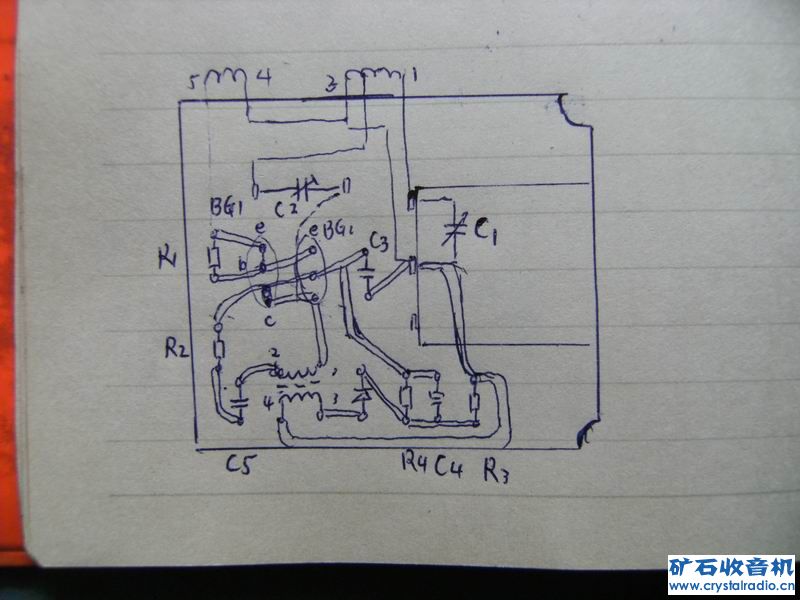 5 4 3 1
C2
BG1 e eBG1 C3 C1
R1 b
c
R2 2 1
4 3
C5 R4 C4 R3
矿石收音机
www.crystalradio.cn